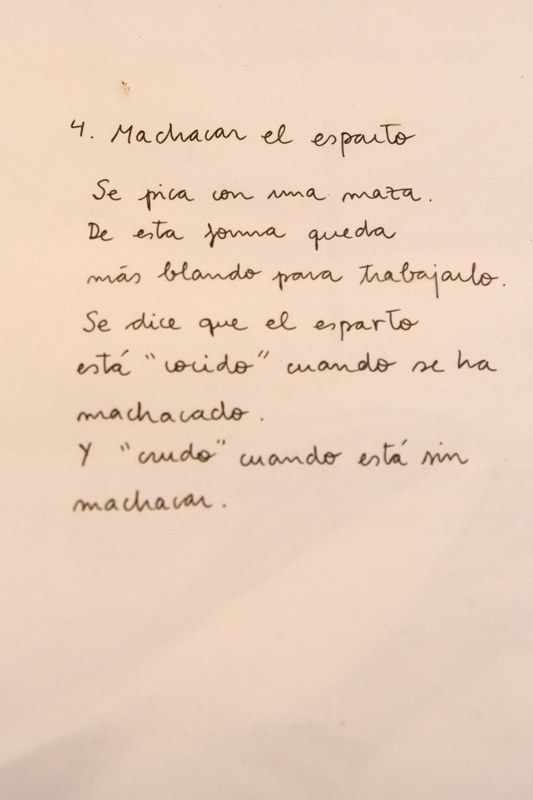 4. Machacar el esparto
Se pica con una maza.
De esta forma queda
más blando para trabajarlo.
Se dice que el esparto
está "cocido" cuando se ha
machacado.
Y "crudo" cuando está sin
machacar.